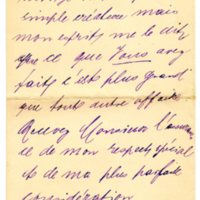 simple créature mais
mon esprit me le dit,
que ce que Vous avez
fait, c'est plus grand
que toute autre affaire
Recevez Monsieur l'assuran
ce de mon respect spécial
et de ma plus parfaite
considération